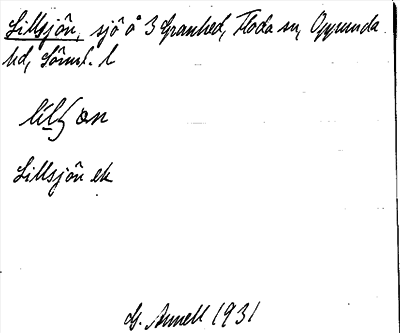 Lillsjön, sjö å 3 Granhed, Floda sn, Oppunda
hd, Sörml. l

Lillsjön ek
G. Annell 1931